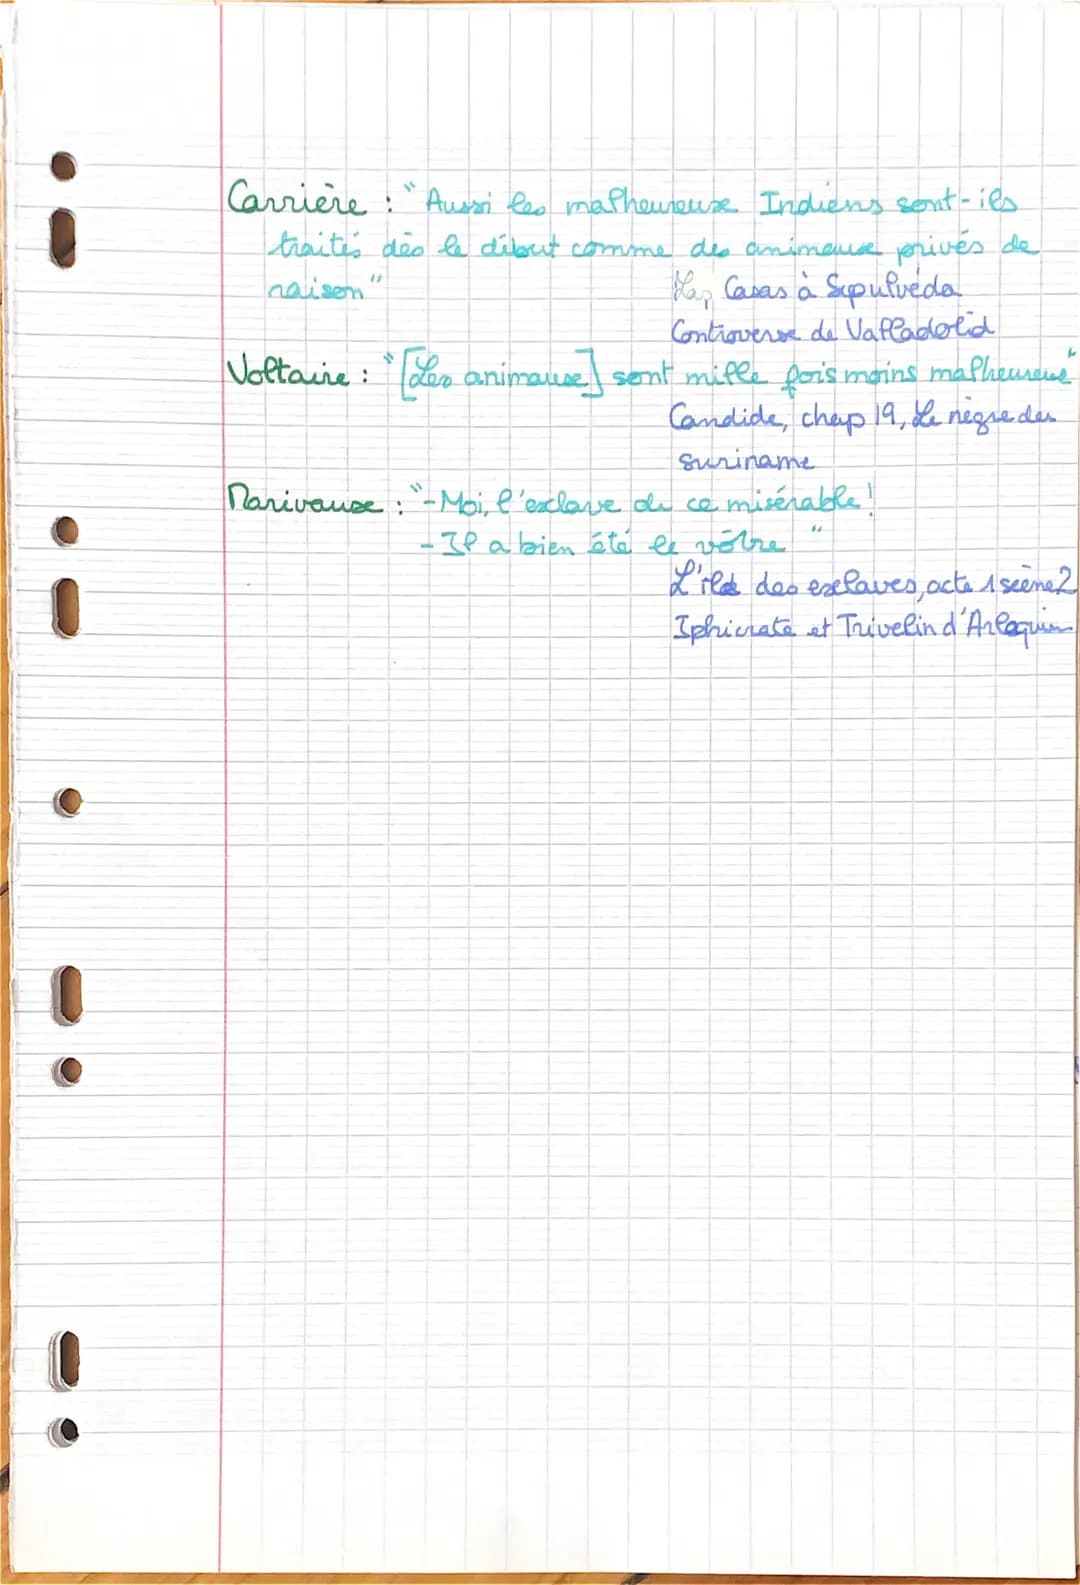 Carrière : "Aussi les malheureux Indiens sont-ils
traités dès le début comme des animaux privés de
raison"
Las Casas à Sepulvéda
Controverse de Valladolid
Voltaire : "[Les animaux] sont mille fois moins malheureux"
Candide, chap 19, Le nègre des
suriname
Marivaux : "-Moi, l'esclave de ce misérable!
-Il a bien été le vôtre"
L'île des esclaves, acte 1 scène 2
Iphicrate et Trivelin d'Arlequin